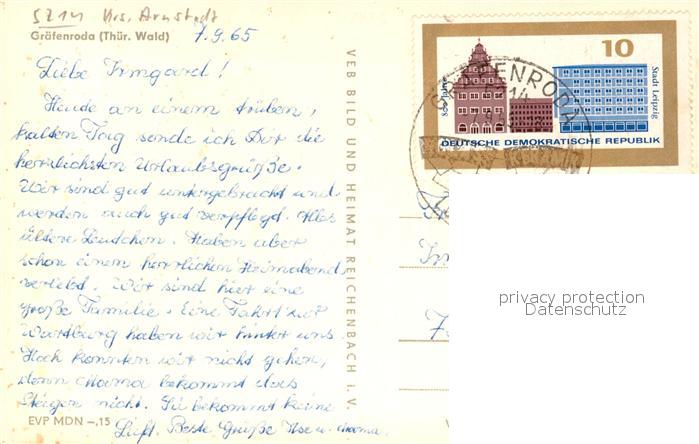 5214 Krs. Arnstadt
Gräfenroda (Thür. Wald)
7.9.65
Liebe Irmgard!
Heute an einem trüben,
kalten Tag sende ich Dir die
herrlichsten Urlaubsgrüße.
Wir sind gut untergebracht und
werden auch gut verpflegt. Alles
ältere Leutchen. Haben aber
schon einen herrlichen Heimabend
verlebt. Wir sind hier eine
große Familie. Eine Fahrt zur
Wartburg haben wir hinter uns.
Hoch konnten wir nicht gehen,
denn Mama bekommt das
Steigen nicht. Sie bekommt keine
Luft. Beste Grüße Ilse u. Mama.
EVP MDN –,15
VEB BILD UND HEIMAT REICHENBACH I. V.
10
800 Jahre
Stadt Leipzig
DEUTSCHE DEMOKRATISCHE REPUBLIK
GRÄFENRODA
privacy protection
Datenschutz